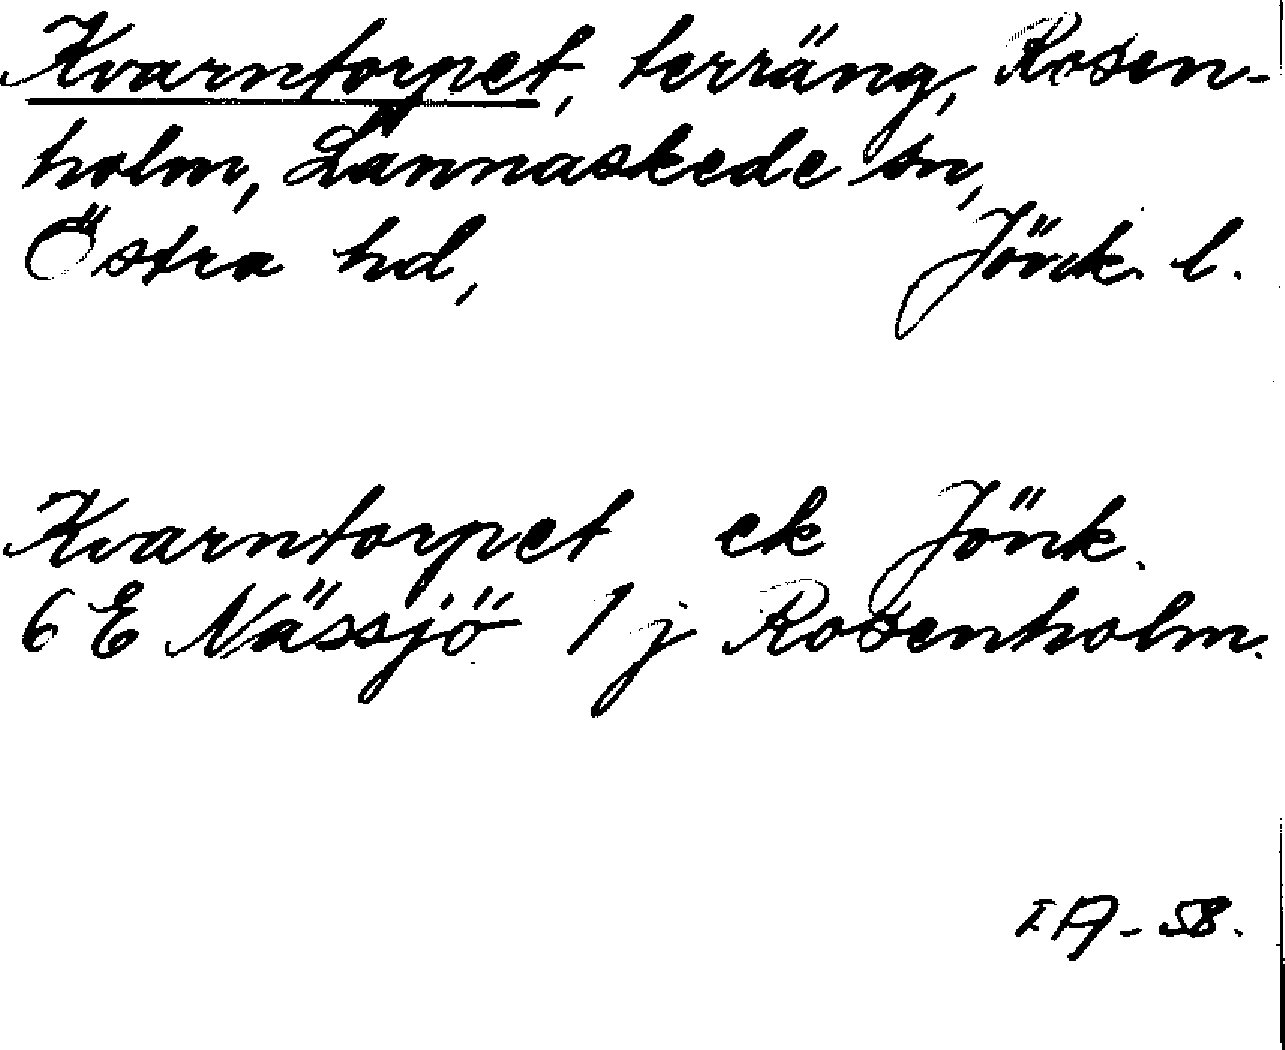 Kvarntorpet, terräng, Rosen-
holm, Lannaskede sn,
Östra hd, Jönk. l.
Kvarntorpet ek Jönk.
6 E Nässjö 1 j Rosenholm.
IA - 58.